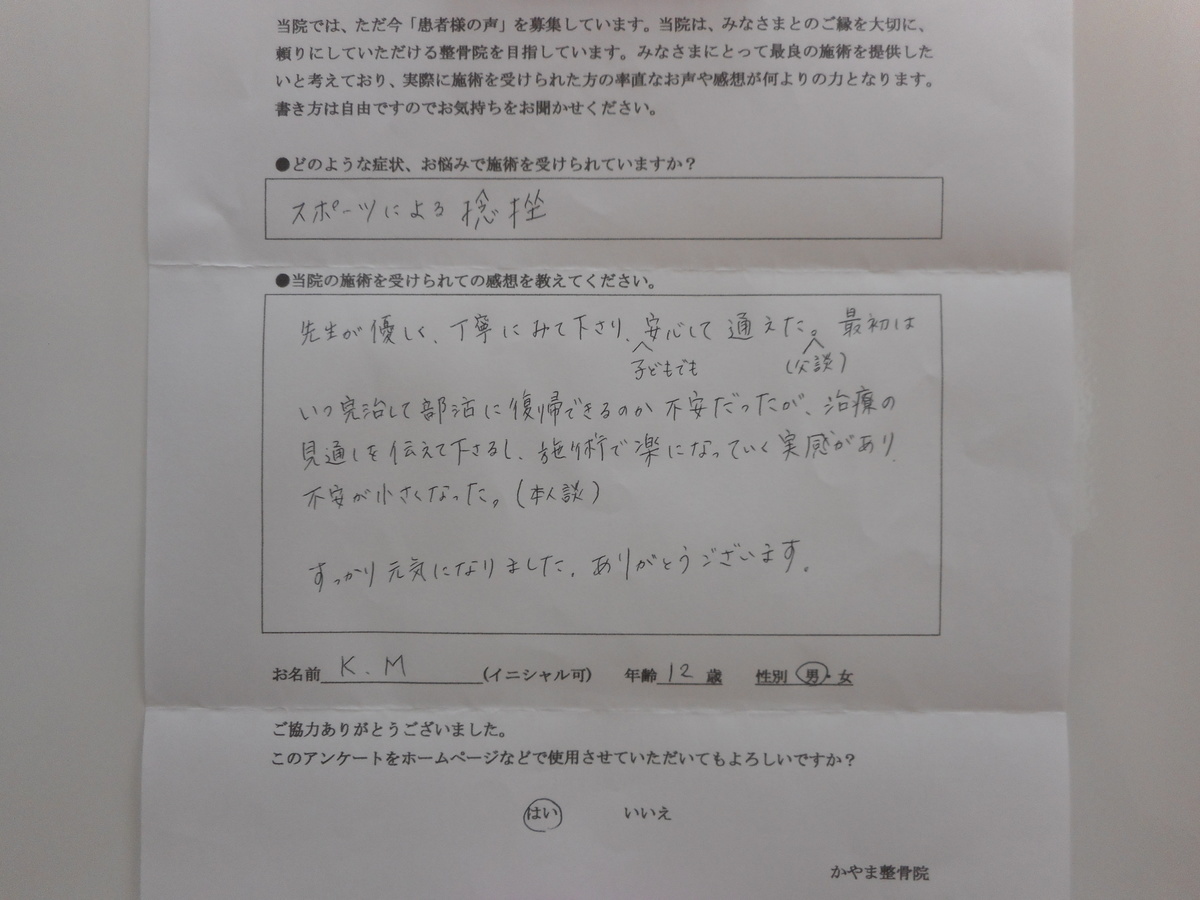 当院では、ただ今「患者様の声」を募集しています。当院は、みなさまとのご縁を大切に、
頼りにしていただける整骨院を目指しています。みなさまにとって最良の施術を提供した
いと考えており、実際に施術を受けられた方の率直なお声や感想が何よりの力となります。
書き方は自由ですのでお気持ちをお聞かせください。
●どのような症状、お悩みで施術を受けられていますか？
スポーツによる捻挫
●当院の施術を受けられての感想を教えてください。
先生が優しく、丁寧にみて下さり、安心して通えた。最初は
子どもでも
(父談)
いつ完治して部活に復帰できるのか不安だったが、治療の
見通しを伝えて下さるし、施術で楽になっていく実感があり
不安が小さくなった。(本人談)
すっかり元気になりました。ありがとうございます。
お名前 K.M (イニシャル可) 年齢 12 歳 性別 男・女
ご協力ありがとうございました。
このアンケートをホームページなどで使用させていただいてもよろしいですか？
はい いいえ
かやま整骨院